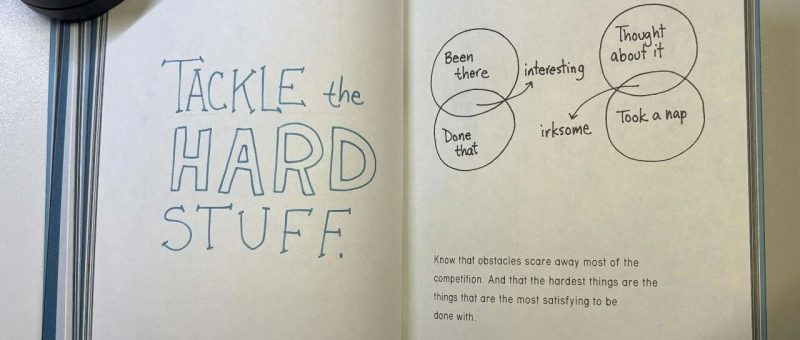 TACKLE the
HARD
STUFF.
Been
there
interesting
Done
that
Thought
about it
irksome
Took a nap
Know that obstacles scare away most of the
competition. And that the hardest things are the
things that are the most satisfying to be
done with.